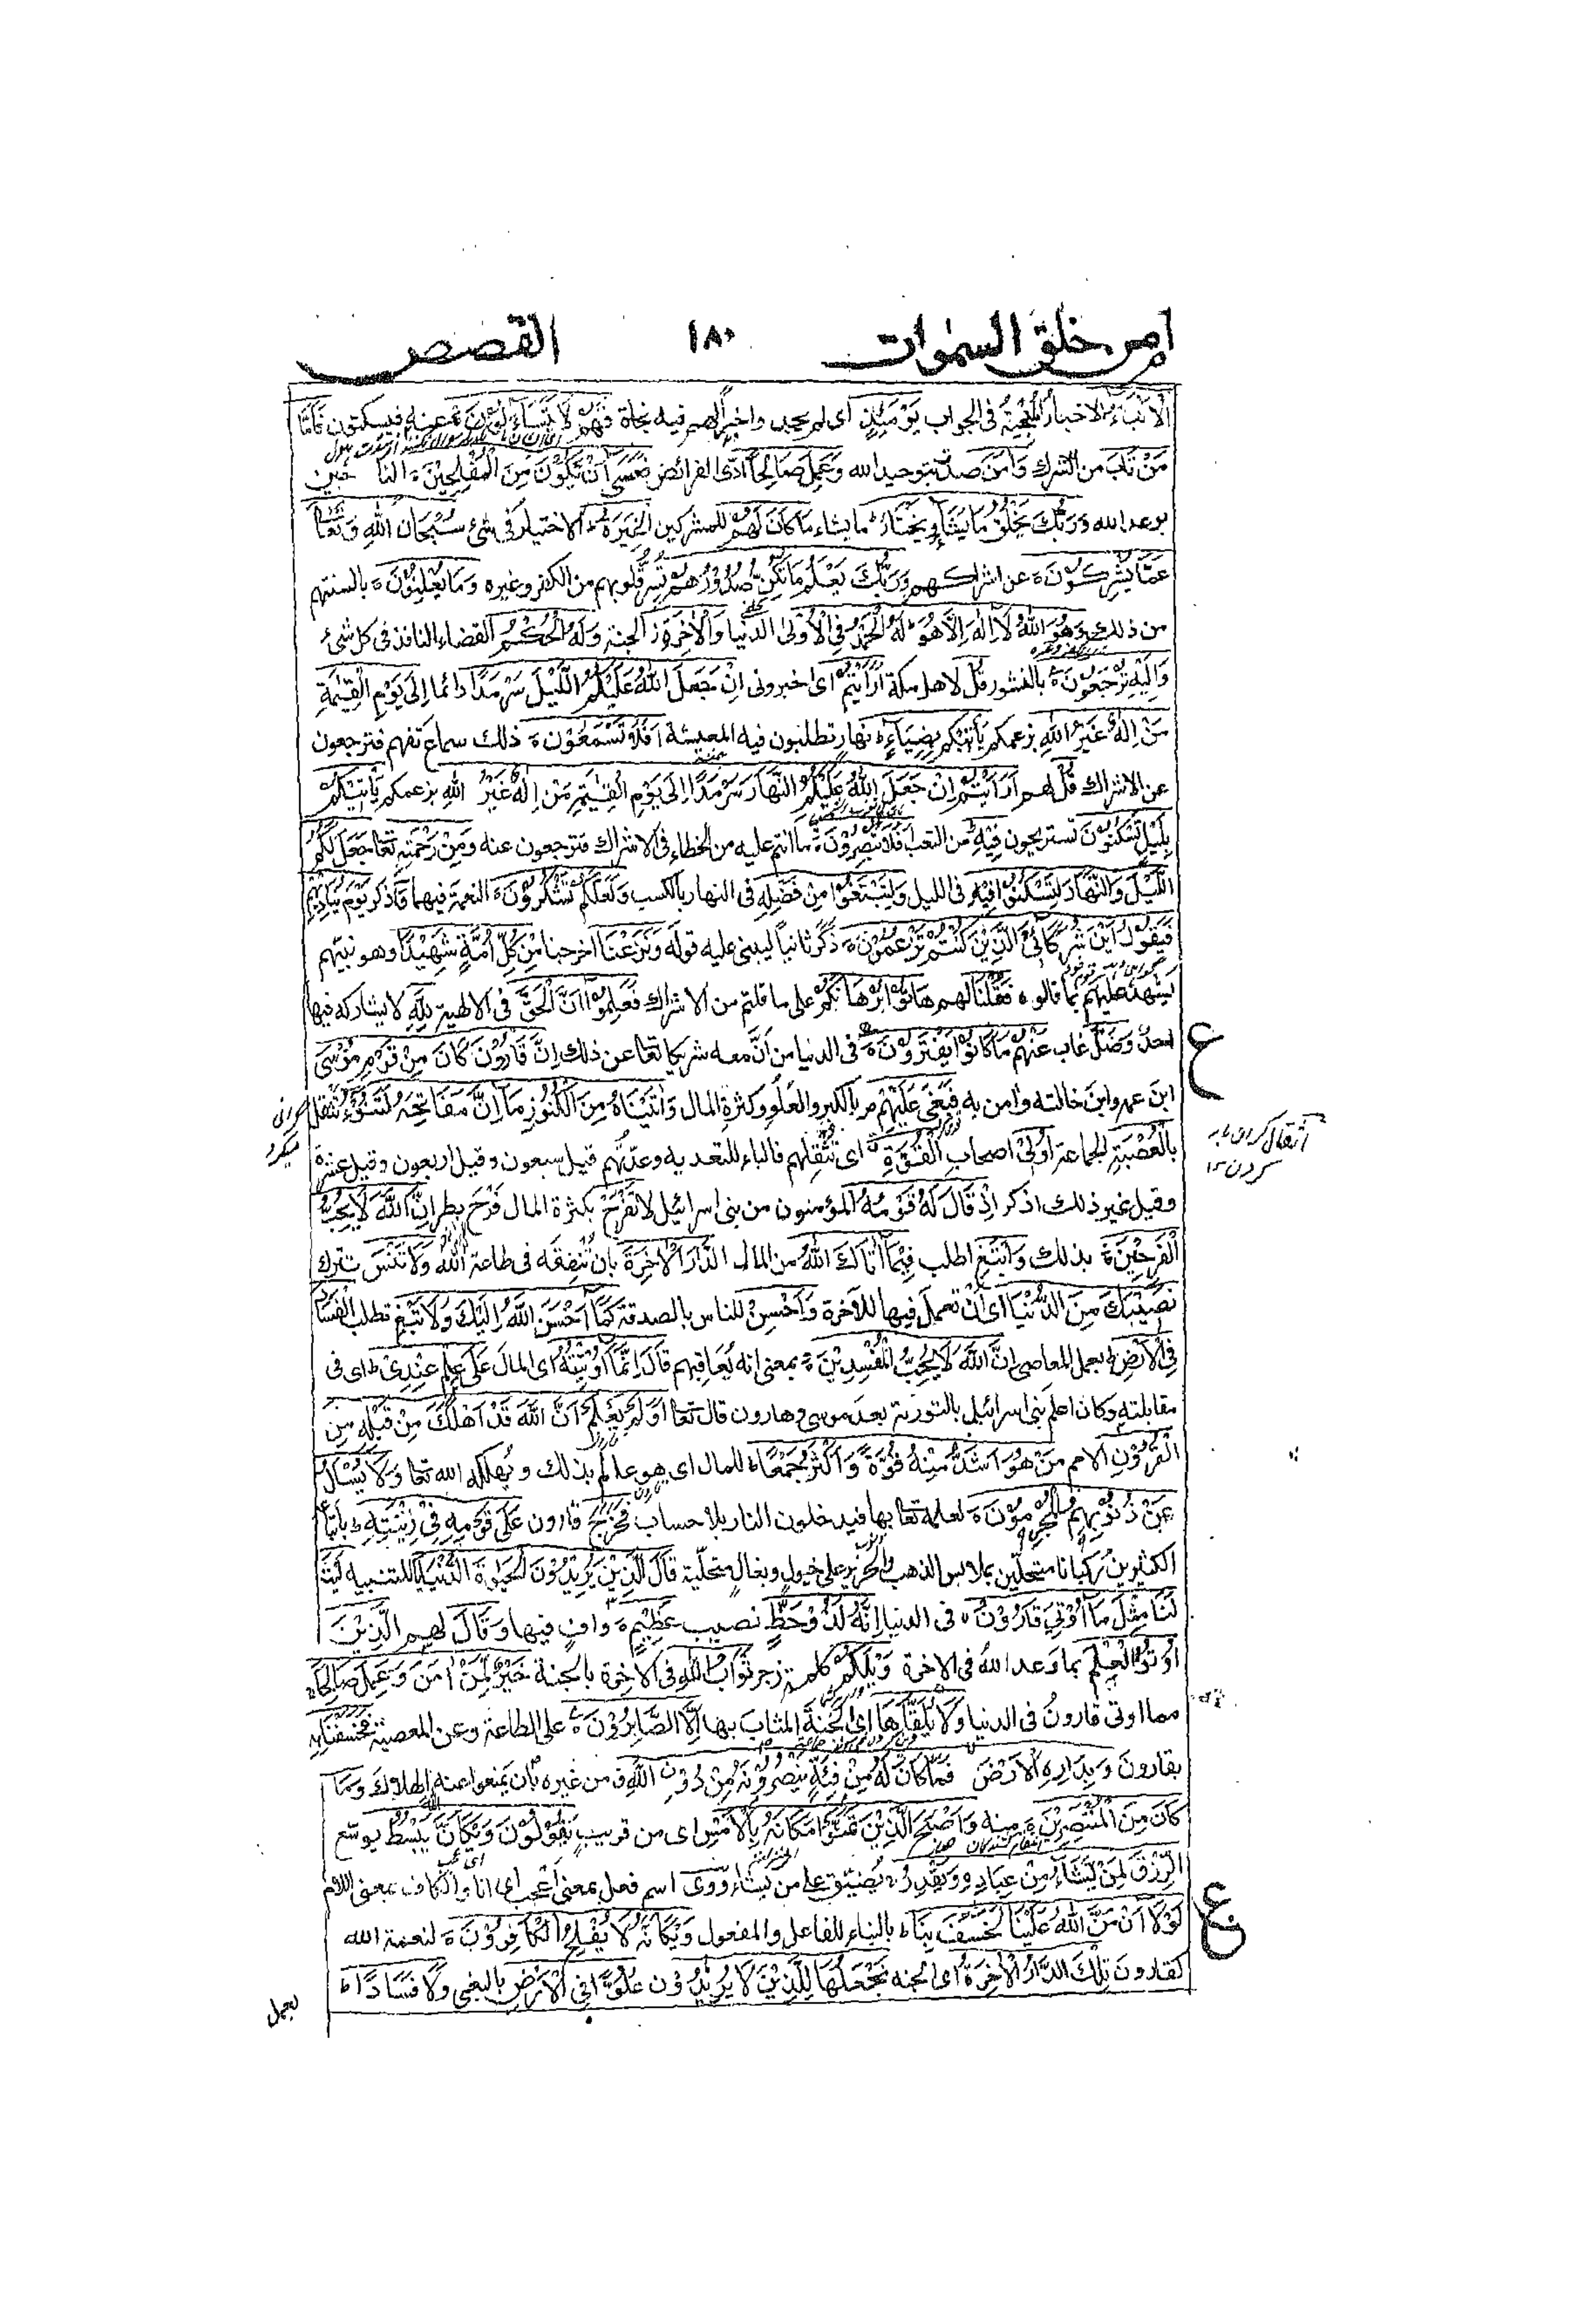 امن خلق السمٰوات ١٨٠ القصص
الْاَنْۢبَآءُ الاخبارُ المُنْجِيَةُ فى الجواب يَوْمَئِذٍ اى لم يجدوا خبرا لهم فيه نجاة فَهُمْ لَا يَتَسَآءَلُوْنَ عنه فيسكتون فَاَمَّا
مَنْ تَابَ من الشرك وَاٰمَنَ صدق بتوحيد الله وَعَمِلَ صَالِحًا ادّى الفرائض فَعَسٰٓى اَنْ يَّكُوْنَ مِنَ الْمُفْلِحِيْنَ الناجين
بوعد الله وَرَبُّكَ يَخْلُقُ مَا يَشَآءُ وَيَخْتَارُ ما يشاء مَا كَانَ لَهُمُ للمشركين الْخِيَرَةُ الاختيار فى شئ سُبْحَانَ اللهِ وَتَعَالٰى
عَمَّا يُشْرِكُوْنَ عن اشراكهم وَرَبُّكَ يَعْلَمُ مَا تُكِنُّ صُدُوْرُهُمْ تُسِرُّ قلوبهم من الكفر وغيره وَمَا يُعْلِنُوْنَ بالسنتهم
من ذلك وَهُوَ اللهُ لَآ اِلٰهَ اِلَّا هُوَ لَهُ الْحَمْدُ فِى الْاُوْلٰى الدنيا وَالْاٰخِرَةِ الجنة وَلَهُ الْحُكْمُ القضاء النافذ فى كل شئ
وَاِلَيْهِ تُرْجَعُوْنَ بالنشور قُلْ لاهل مكة اَرَاَيْتُمْ اى اخبرونى اِنْ جَعَلَ اللهُ عَلَيْكُمُ الَّيْلَ سَرْمَدًا دائما اِلٰى يَوْمِ الْقِيٰمَةِ
مَنْ اِلٰهٌ غَيْرُ اللهِ بزعمكم يَاْتِيْكُمْ بِضِيَآءٍ نهار تطلبون فيه المعيشة اَفَلَا تَسْمَعُوْنَ ذلك سماع تفهم فترجعون
عن الاشراك قُلْ لهم اَرَاَيْتُمْ اِنْ جَعَلَ اللهُ عَلَيْكُمُ النَّهَارَ سَرْمَدًا اِلٰى يَوْمِ الْقِيٰمَةِ مَنْ اِلٰهٌ غَيْرُ اللهِ بزعمكم يَاْتِيْكُمْ
بِلَيْلٍ تَسْكُنُوْنَ تستريحون فِيْهِ من التعب اَفَلَا تُبْصِرُوْنَ ما انتم عليه من الخطاء فى الاشراك فترجعون عنه وَمِنْ رَّحْمَتِهٖ تعالى جَعَلَ لَكُمُ
الَّيْلَ وَالنَّهَارَ لِتَسْكُنُوْا فِيْهِ فى الليل وَلِتَبْتَغُوْا مِنْ فَضْلِهٖ فى النهار بالكسب وَلَعَلَّكُمْ تَشْكُرُوْنَ النعمة فيهما وَاذكر يَوْمَ يُنَادِيْهِمْ
فَيَقُوْلُ اَيْنَ شُرَكَآئِىَ الَّذِيْنَ كُنْتُمْ تَزْعُمُوْنَ ذكر ثانيا ليبنى عليه قوله وَنَزَعْنَا اخرجنا مِنْ كُلِّ اُمَّةٍ شَهِيْدًا وهو نبيهم
يشهد عليهم بما قالوه فَقُلْنَا لهم هَاتُوْا بُرْهَانَكُمْ على ما قلتم من الاشراك فَعَلِمُوْٓا اَنَّ الْحَقَّ فى الالهية لِلّٰهِ لا يشاركه فيها
احد وَضَلَّ غاب عَنْهُمْ مَّا كَانُوْا يَفْتَرُوْنَ فى الدنيا من اَنَّ معه شريكا تعالى عن ذلك اِنَّ قَارُوْنَ كَانَ مِنْ قَوْمِ مُوْسٰى
ابن عمه وابن خالته وامن به فَبَغٰى عَلَيْهِمْ بالكبر والعلو وكثرة المال وَاٰتَيْنَاهُ مِنَ الْكُنُوْزِ مَآ اِنَّ مَفَاتِحَهٗ لَتَنُوْٓءُ تثقل
بِالْعُصْبَةِ الجماعة اُولِى اصحاب الْقُوَّةِ اى تثقلهم فالباء للتعدية وعدّتهم قيل سبعون وقيل اربعون وقيل عشرة
وقيل غير ذلك اذكر اِذْ قَالَ لَهٗ قَوْمُهٗ المؤمنون من بنى اسرائيل لَا تَفْرَحْ بكثرة المال فرح بطر اِنَّ اللهَ لَا يُحِبُّ
الْفَرِحِيْنَ بذلك وَابْتَغِ اطلب فِيْمَآ اٰتَاكَ اللهُ من المال الدَّارَ الْاٰخِرَةَ بان تُنْفِقَه فى طاعة الله وَلَا تَنْسَ تترك
نَصِيْبَكَ مِنَ الدُّنْيَا اى اَنْ تعمل فيها للآخرة وَاَحْسِنْ للناس بالصدقة كَمَآ اَحْسَنَ اللهُ اِلَيْكَ وَلَا تَبْغِ تطلب الْفَسَادَ
فِى الْاَرْضِ بعمل المعاصى اِنَّ اللهَ لَا يُحِبُّ الْمُفْسِدِيْنَ بمعنى انه يعاقبهم قَالَ اِنَّمَآ اُوْتِيْتُهٗ اى المال عَلٰى عِلْمٍ عِنْدِىْ اى فى
مقابلته وكان اعلم بنى اسرائيل بالتورية بعد موسى وهارون قال تعالى اَوَلَمْ يَعْلَمْ اَنَّ اللهَ قَدْ اَهْلَكَ مِنْ قَبْلِهٖ مِنَ
الْقُرُوْنِ الامم مَنْ هُوَ اَشَدُّ مِنْهُ قُوَّةً وَّاَكْثَرُ جَمْعًا للمال اى هو عالم بذلك ويهلكه الله تعالى وَلَا يُسْاَلُ
عَنْ ذُنُوْبِهِمُ الْمُجْرِمُوْنَ لعلمه تعالى بها فيدخلون النار بلا حساب فَخَرَجَ قارون عَلٰى قَوْمِهٖ فِىْ زِيْنَتِهٖ باتباعه
الكثيرين ركبانا متحلّين بملابس الذهب والحرير على خيول وبغال متحلّية قَالَ الَّذِيْنَ يُرِيْدُوْنَ الْحَيٰوةَ الدُّنْيَا يا للتنبيه لَيْتَ
لَنَا مِثْلَ مَآ اُوْتِىَ قَارُوْنُ فى الدنيا اِنَّهٗ لَذُوْ حَظٍّ نصيب عَظِيْمٍ واف فيها وَقَالَ لهم الَّذِيْنَ
اُوْتُوا الْعِلْمَ بما وعد الله فى الاخرة وَيْلَكُمْ كلمة زجر ثَوَابُ اللهِ فى الاخرة بالجنة خَيْرٌ لِّمَنْ اٰمَنَ وَعَمِلَ صَالِحًا
مما اوتى قارون فى الدنيا وَلَا يُلَقّٰهَآ اى الجنة المثاب بها اِلَّا الصَّابِرُوْنَ على الطاعة وعن المعصية فَخَسَفْنَا بِهٖ
بقارون وَبِدَارِهِ الْاَرْضَ فَمَا كَانَ لَهٗ مِنْ فِئَةٍ يَّنْصُرُوْنَهٗ مِنْ دُوْنِ اللهِ من غيره بان يمنعوا عنه الهلاك وَمَا
كَانَ مِنَ الْمُنْتَصِرِيْنَ منه وَاَصْبَحَ الَّذِيْنَ تَمَنَّوْا مَكَانَهٗ بِالْاَمْسِ اى من قريب يَقُوْلُوْنَ وَيْكَاَنَّ اللهَ يَبْسُطُ يوسّع
الرِّزْقَ لِمَنْ يَّشَآءُ مِنْ عِبَادِهٖ وَيَقْدِرُ يضيّق على من يشاء ووَىْ اسم فعل بمعنى اَعْجَبُ اى انا والكاف بمعنى اللام
لَوْلَآ اَنْ مَّنَّ اللهُ عَلَيْنَا لَخَسَفَ بِنَا بالبناء للفاعل والمفعول وَيْكَاَنَّهٗ لَا يُفْلِحُ الْكَافِرُوْنَ لنعمة الله
كقارون تِلْكَ الدَّارُ الْاٰخِرَةُ اى الجنة نَجْعَلُهَا لِلَّذِيْنَ لَا يُرِيْدُوْنَ عُلُوًّا فِى الْاَرْضِ بالبغى وَلَا فَسَادًا
بعمل
ع
ع